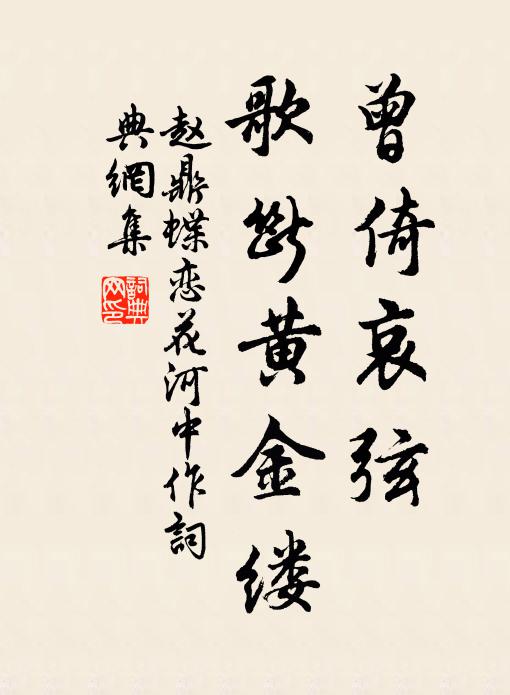 曾倚哀弦
歌断黄金缕
赵鼎蝶恋花河中作詞
典網集
詞典網印